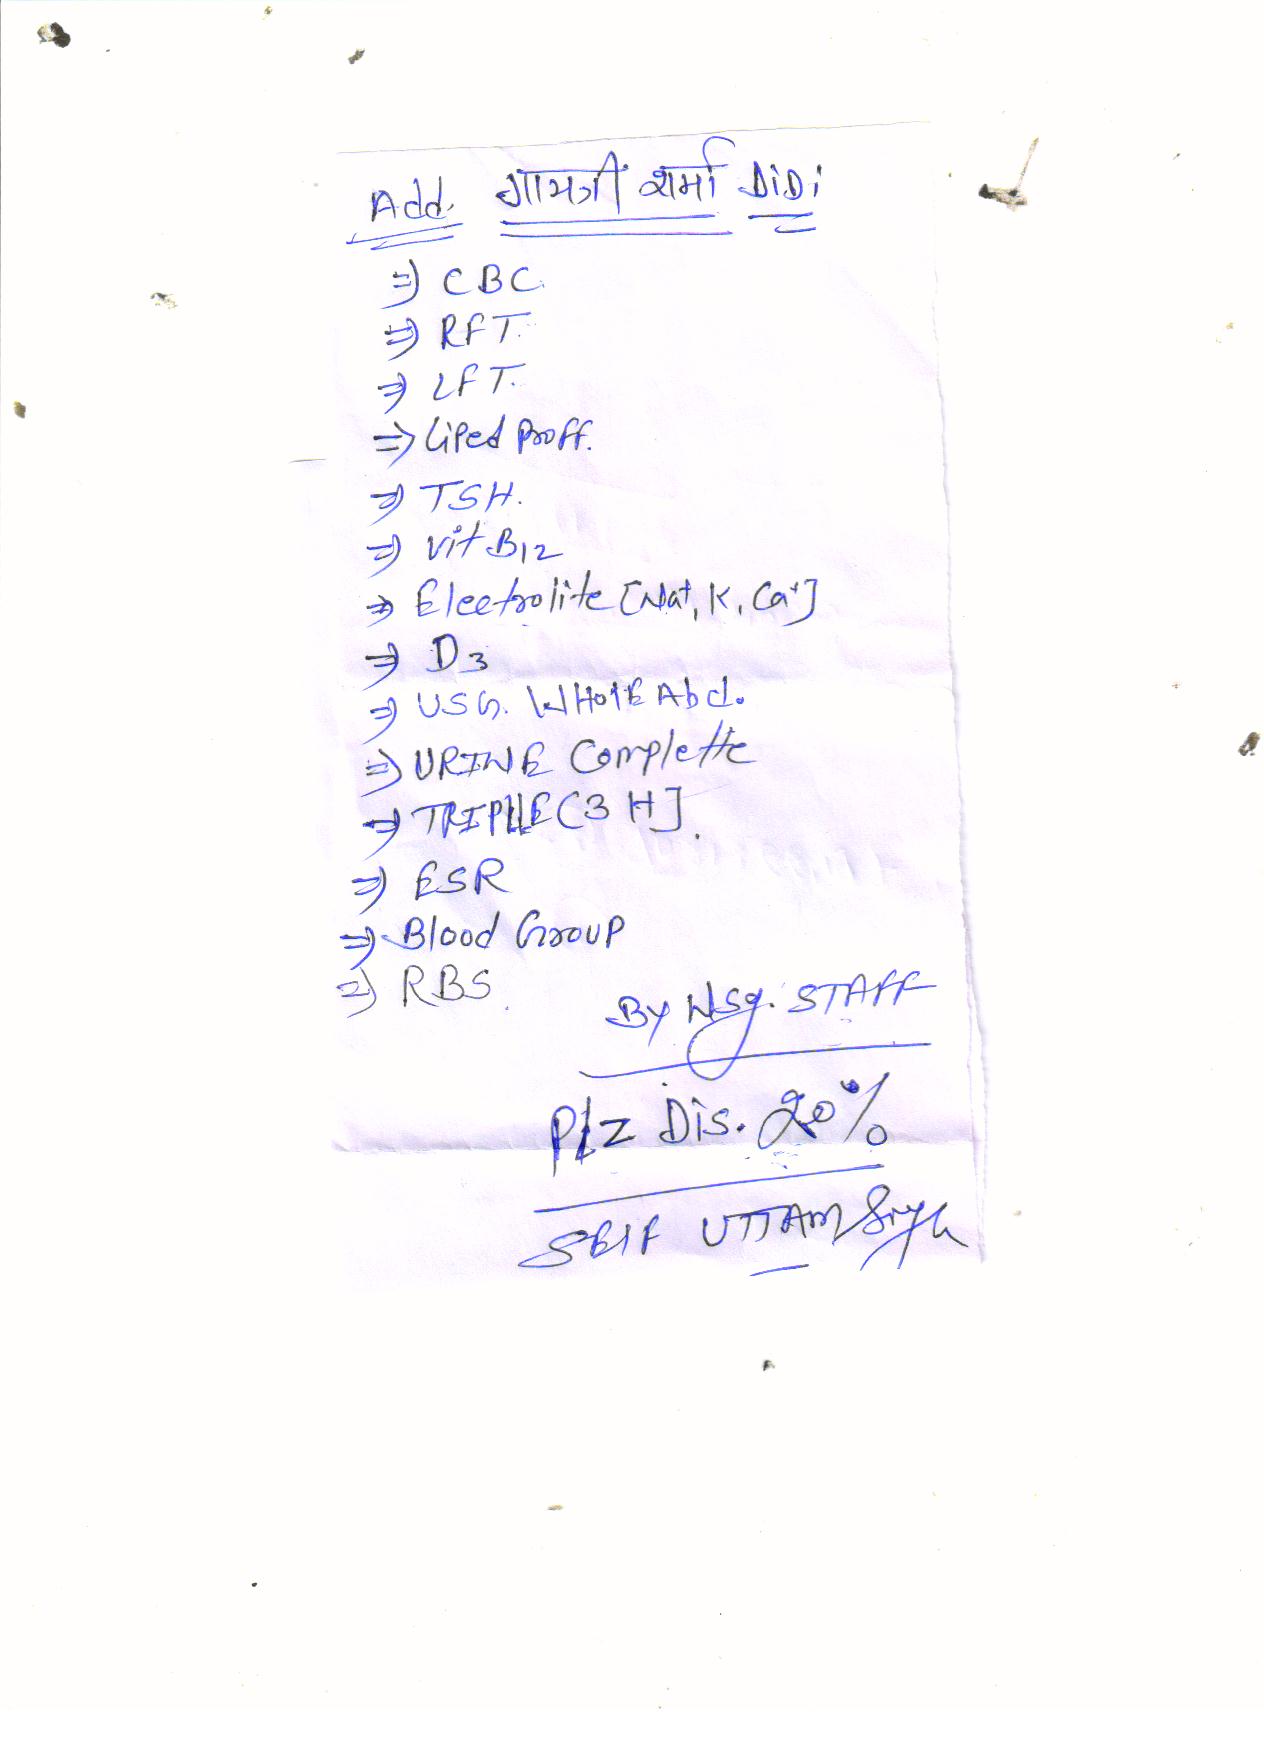 Add. गायत्री शर्मा DiDi
⇒ CBC.
⇒ RFT.
⇒ LFT.
⇒ Liped Proff.
⇒ TSH.
⇒ Vit B12
⇒ Electrolite [Na+, K, Ca+]
⇒ D3
⇒ USG. WHOlE Abd.
⇒ URINE Complette
⇒ TRIPLLE [3 H].
⇒ ESR
⇒ Blood Group
⇒ RBS.
By Nsg. STAFF
Plz Dis. 20%
SElf UTTAM Singh